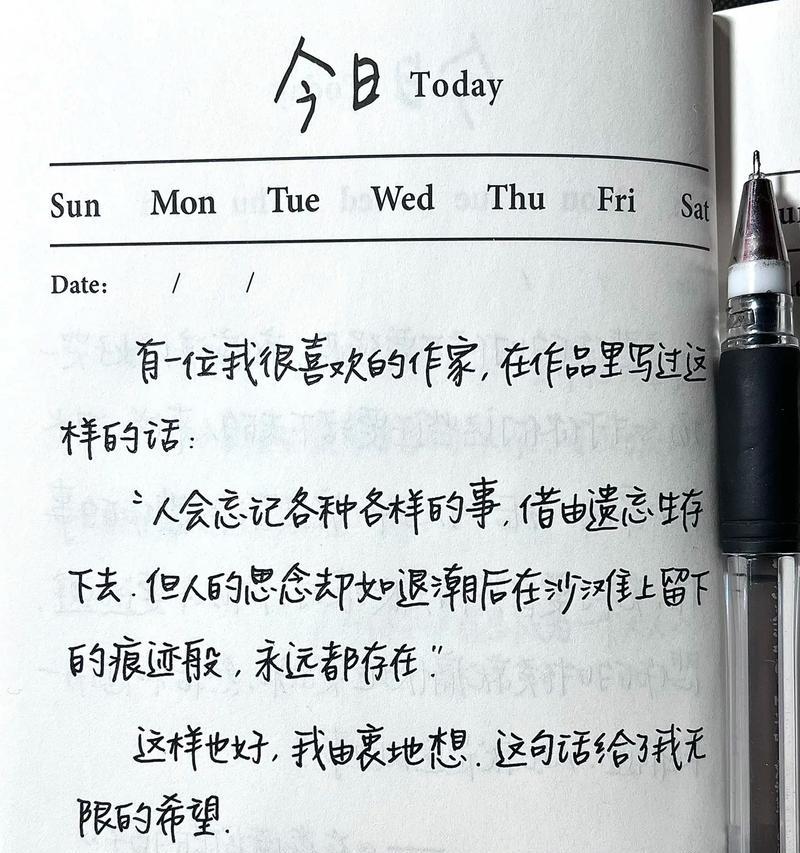 今日 Today
Sun Mon Tue Wed Thu Fri Sat
Date: / /
有一位我很喜欢的作家,在作品里写过这
样的话:
"人会忘记各种各样的事,借由遗忘生存
下去.但人的思念却如退潮后在沙滩上留下
的痕迹般,永远都存在"
这样也好,我由衷地想.这句话给了我无
限的希望.